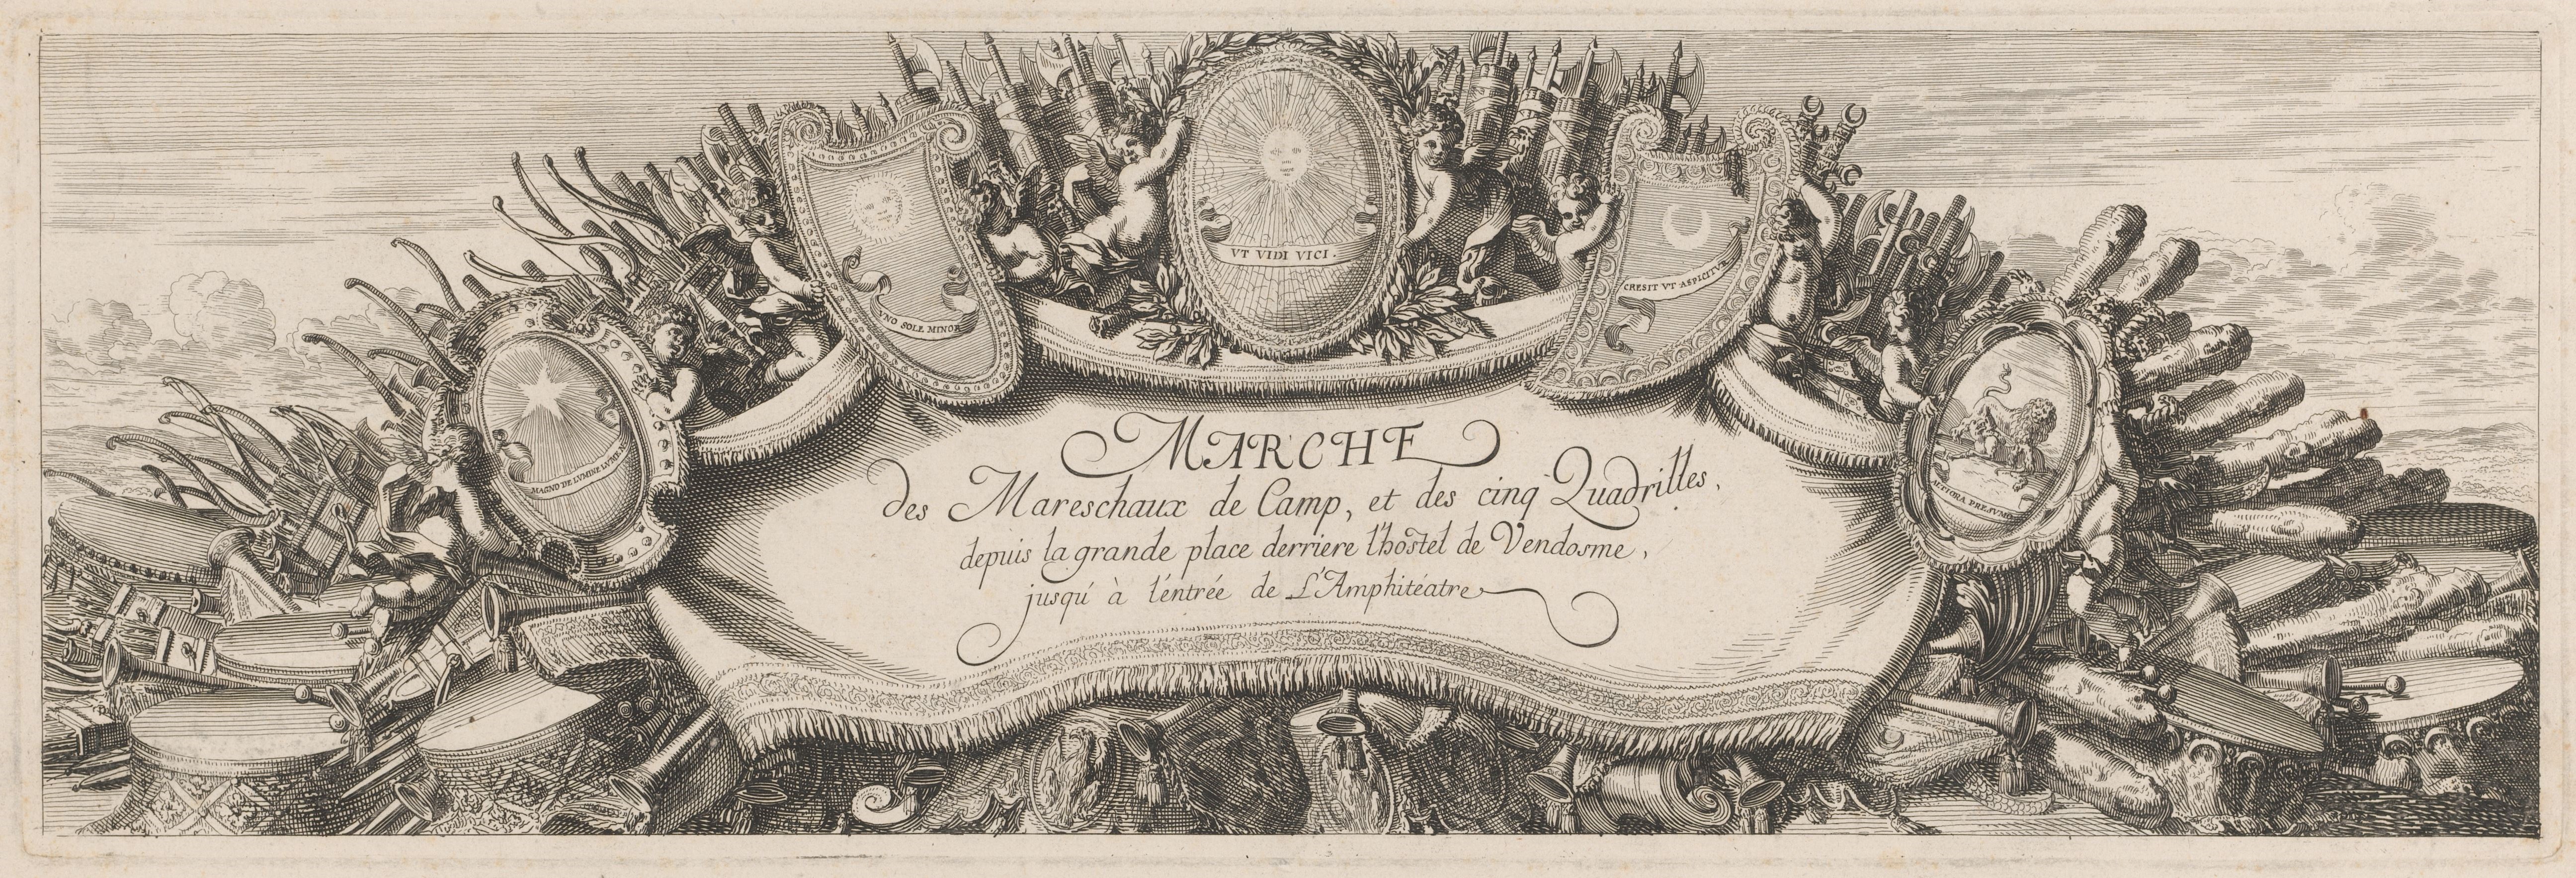 VT VIDI VICI.
VNO SOLE MINOR
CRESIT VT ASPICITVR
MAGNO DE LVMINE LVMEN
ALTIORA PRESVMO
MARCHE
des Mareschaux de Camp, et des cinq Quadrilles,
depuis la grande place derriere l'hostel de Vendosme,
jusqu'à l'éntrée de L'Amphitéatre